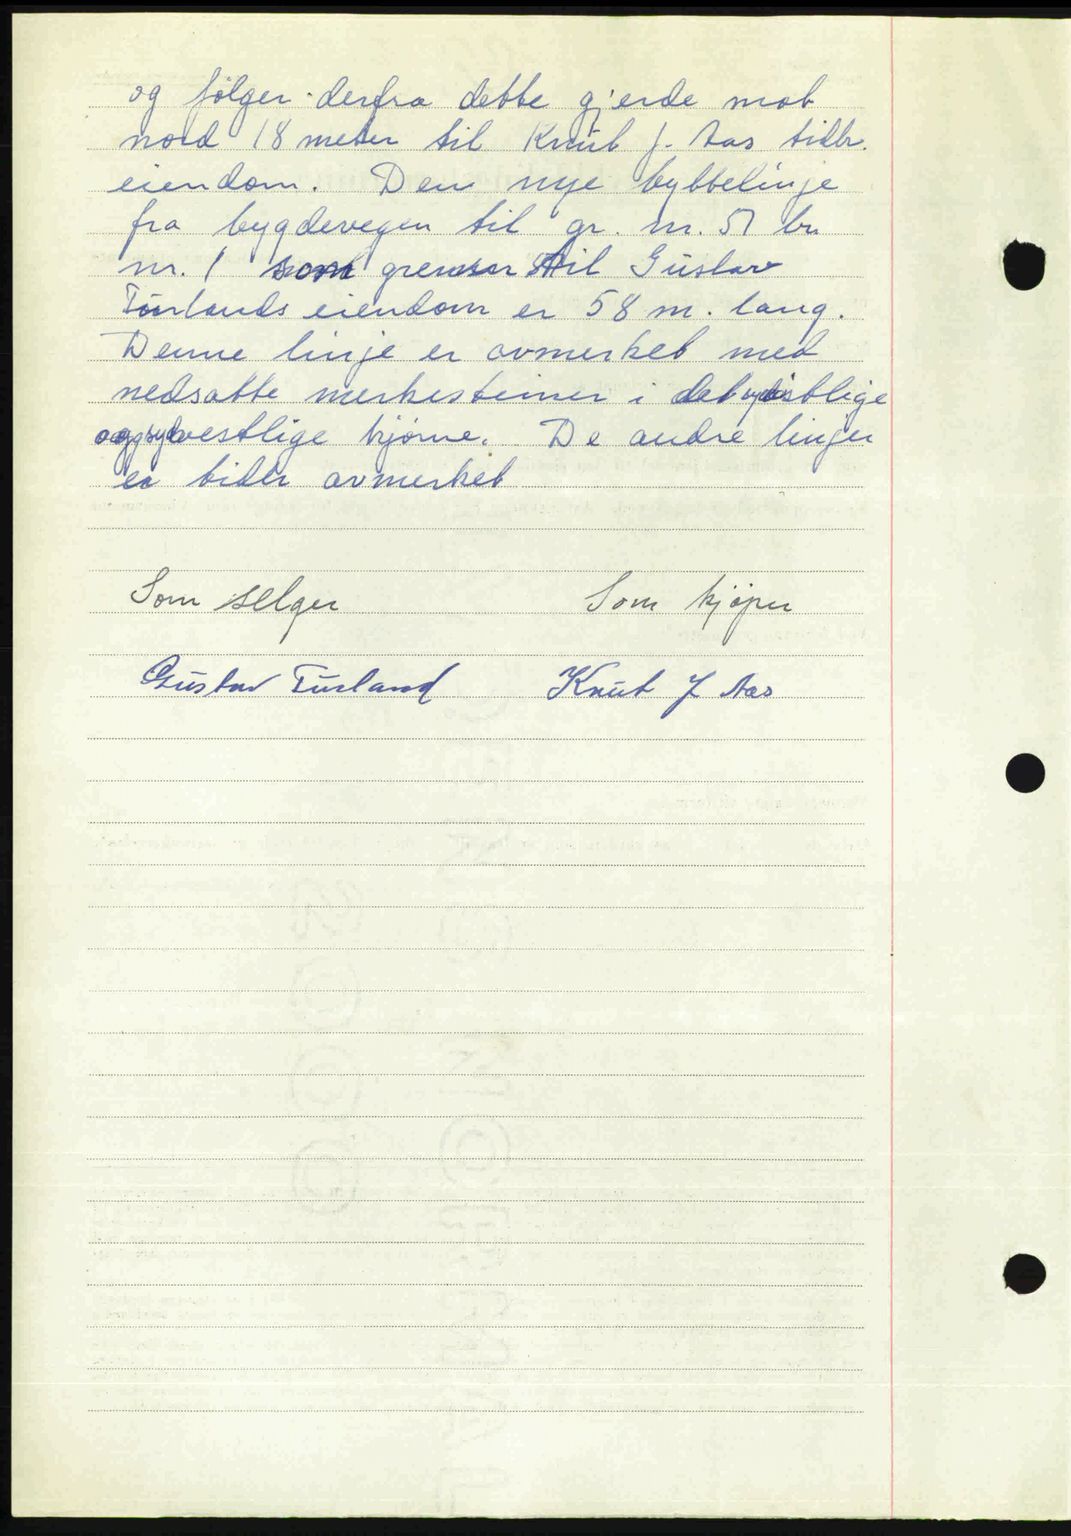 og følger derfra dette gjerde mot
nord 18 meter til Knut J. Aas tidlr.
eiendom. Den nye byttelinje
fra bygdevegen til gr. nr. 51 br.
nr. 1 som grenser til Gustav
Turlands eiendom er 58 m. lang.
Denne linje er avmerket med
nedsatte merkesteiner i det sydøstlige
og sydvestlige hjørne. De andre linjer
er tidlr avmerket
Som selger Som kjøper
Gustav Turland Knut J Aas